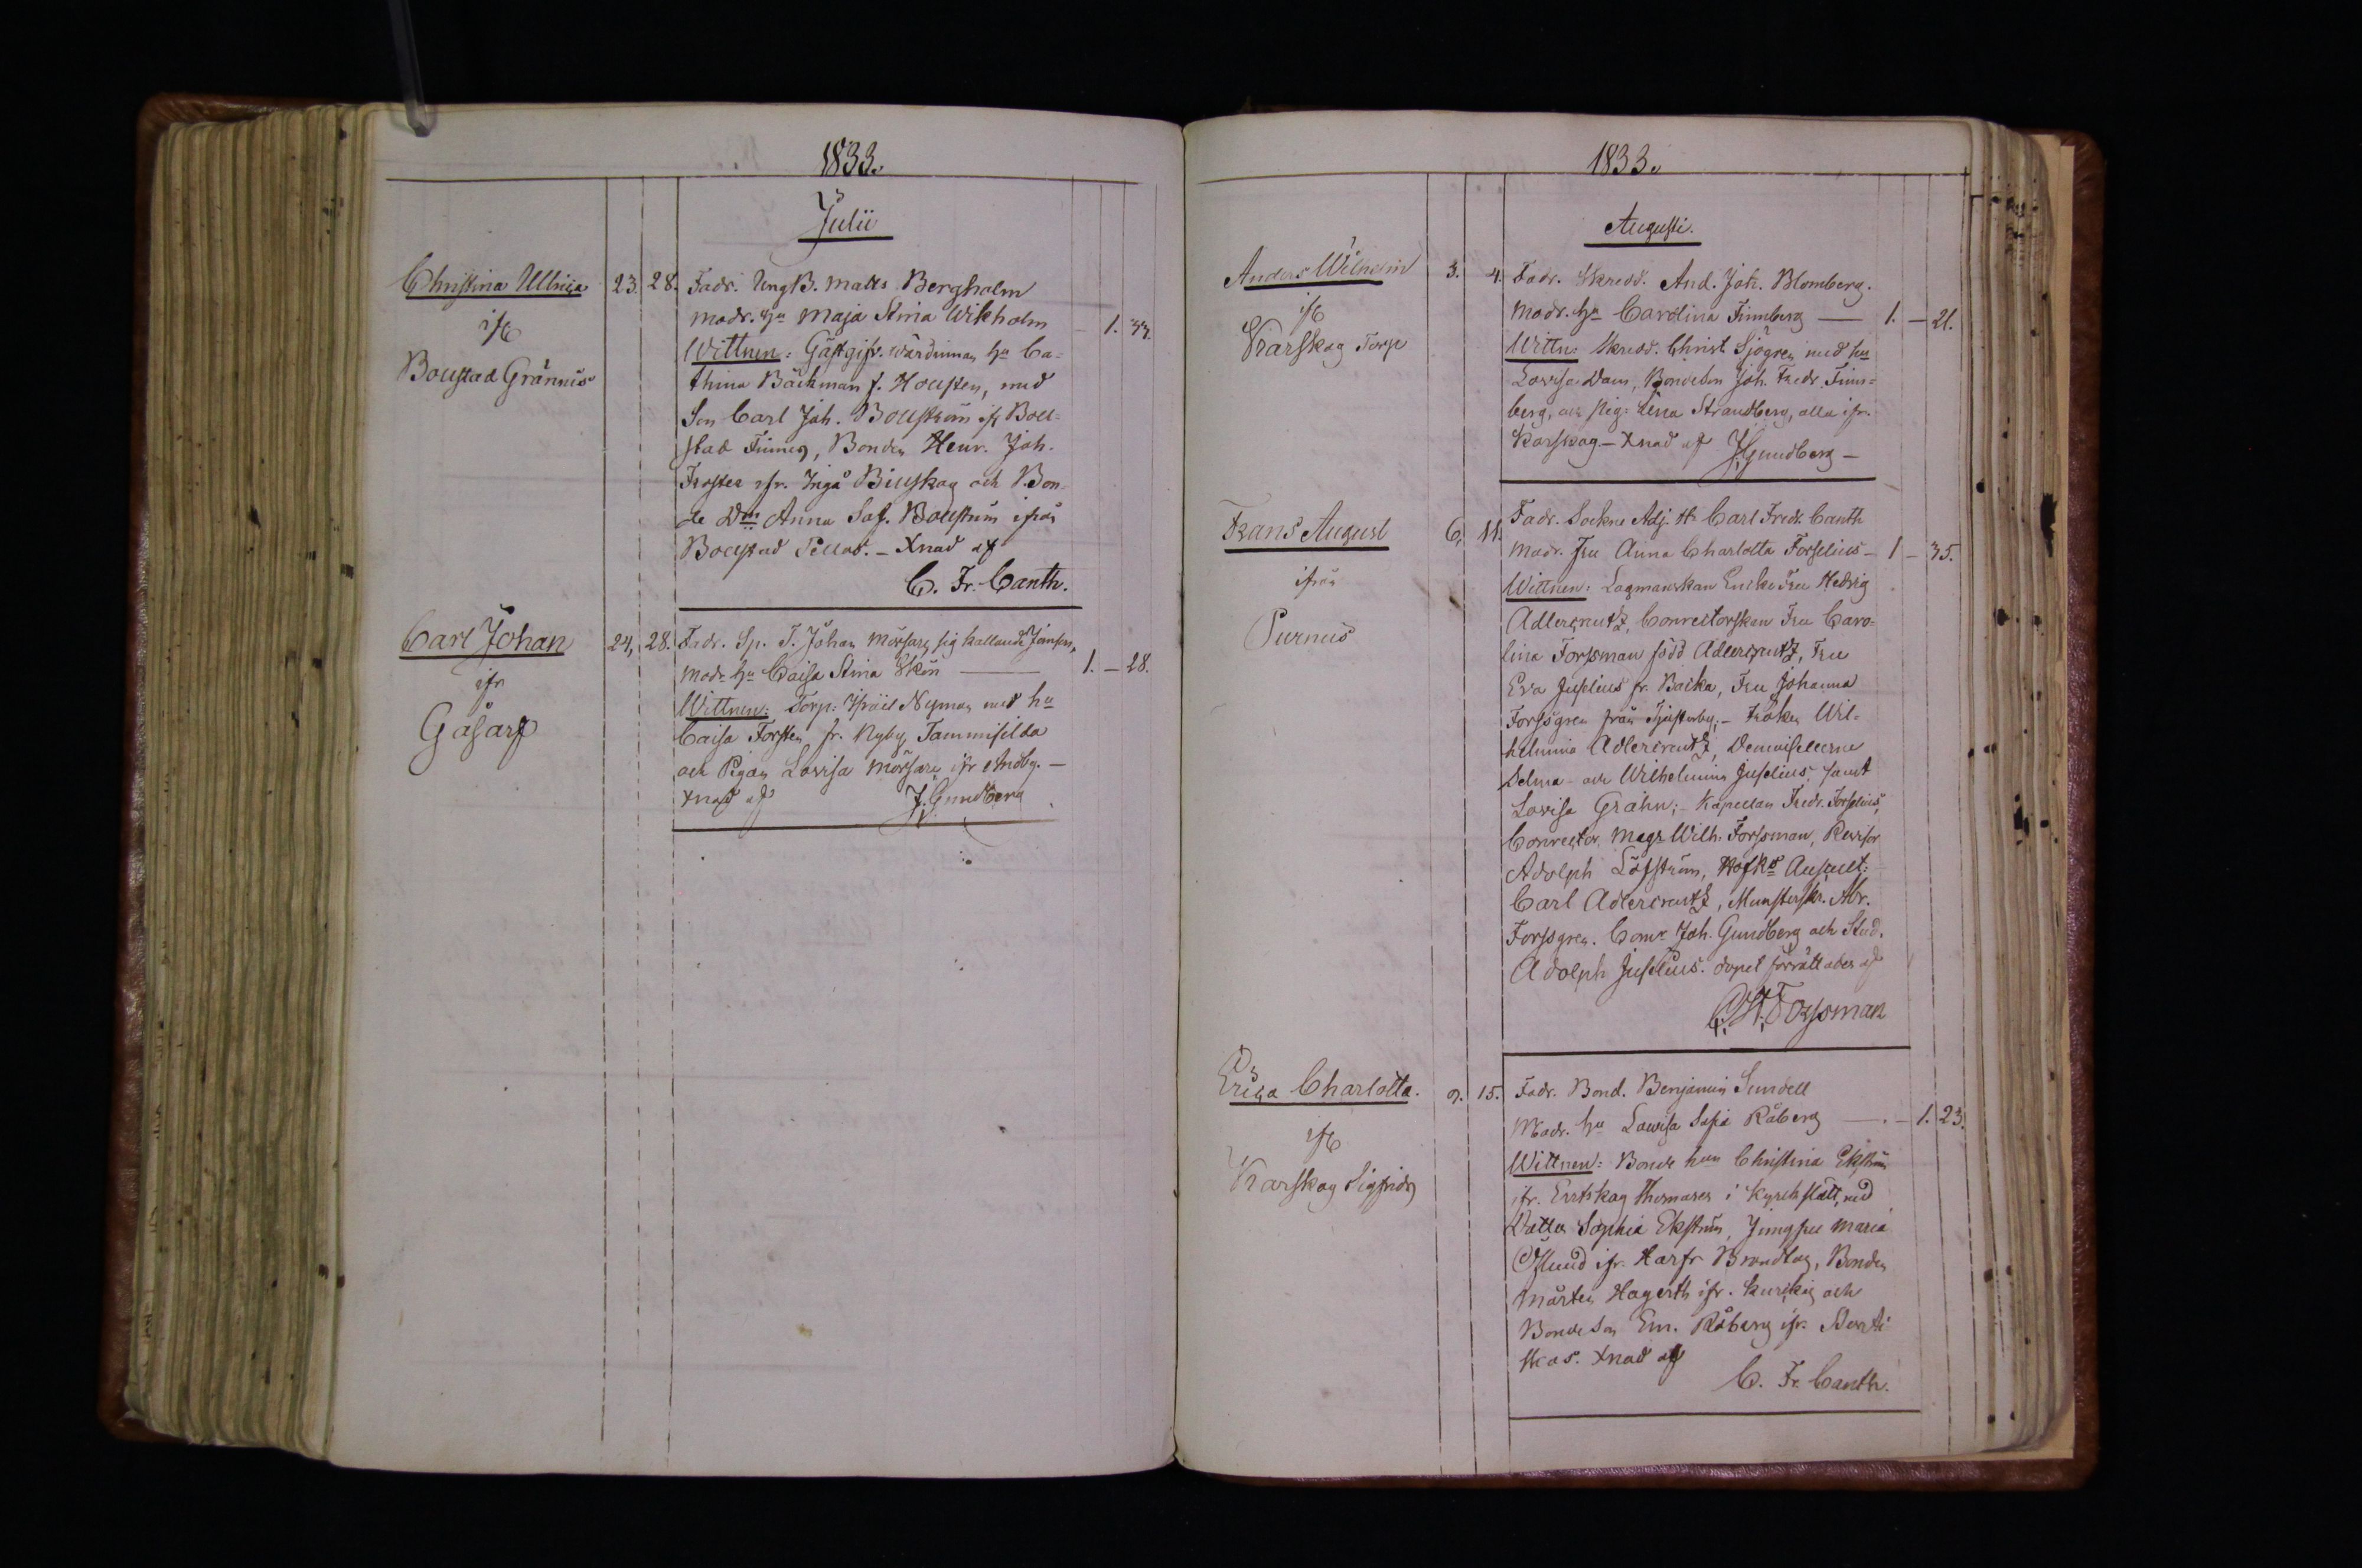 1833.
Julii
Christina Ulrica 23. 28. Fadr. Ung B. Matts Bergholm
ifr Modr. Hu Maja Stina Wikholm — 1. 33.
Boustad Grännäs Wittnen: Gästgifv. wärdinnan Hu Ca=
thina Bäckman f. Housten, med
Son Carl Joh. Bouström ifr Bou=
stad Finnes, Bonden Henr. Joh.
ifr. Ingå Biuskog och Bon-
de Dn Anna Sof. Bouström ifrån
Boustad . – Xnad af
C. Fr. Canth.
Carl Johan 24, 28. Fadr. Sp. T. Johan Mörsare sig kallande
ifr Modr Hu Caisa Stina Skön — 1. — 28.
Gåsarf Wittnen: Torp: Isräel Nyman med hu
Caisa Forsten fr. Nyby Tammisilda
och Pigan Lovisa Mörsare ifr
Xnad af J. Gundberg
1833.
Augusti.
Anders Wilhelm 3. 4. Fadr. Skredd. And. Joh. Blomberg.
ifr Modr. Hu Carolina Finnberg — 1. — 21.
Karskog Torp Wittn: Skredd. Christ. Sjögren med hu
Lovisa Dam, Bondeson Joh. Fredr. Finn=
berg, och Pig: Lena Strandberg, alla ifr.
Karskog. – Xnad af J. Gundberg –
Frans August 6. 11. Fadr. Sockne Adj. Hr Carl Fredr. Canth
ifrån Modr. Fru Anna Charlotta Forselius – 1 – 35.
Purnus Wittnen: Lagmanskan Enkefru Hedvig
Adlercreutz, Conrectorskan Fru Caro=
lina Forssman född Adlercreutz, Fru
Eva Juselius fr. Backa, Fru Johanna
Forssgren från Tjusterby; – Fröken Wil=
helmina Adlercreutz, Demoisellerne
Selma och Wilhelmina Juselius, samt
Lovisa Grahn; – Kapellan Fredr. Forselius,
Conrector Magr Wilh. Forssman, Revisor
Adolph Löfström, Hofrs Auscult:
Carl Adlercreutz, Munsterskr. Abr.
Forssgren. Comr Joh. Gundberg och Stud.
Adolph Juselius. dopet förrättades af
C. W. Forssman
Erica Charlotta. 9. 15. Fadr. Bond. Benjamin Sundell
ifr Modr. Hu Lowisa Sofia Råberg — 1. 23.
Karskog Sigfrids Wittnen: Bonde hun Christina Ekström
ifr. Evitskog Thomases i Kyrckslätt, med
Dotter Sophia Ekström, Jungfru Maria
Öslund ifr. Brandbag, Bonden
Mårten Hagerth ifr. och
Bonde Son Em. Råberg ifr.
skos. Xnad af
C. Fr. Canth.